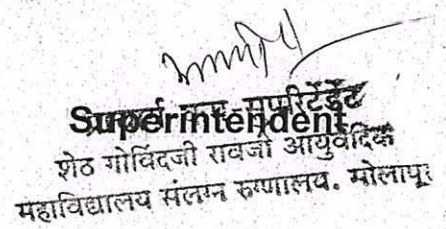 Superintendent
सुपरिटेंडेंट
शेठ गोविंदजी रावजी आयुर्वेदिक
महाविद्यालय संलग्न रुग्णालय. सोलापूर